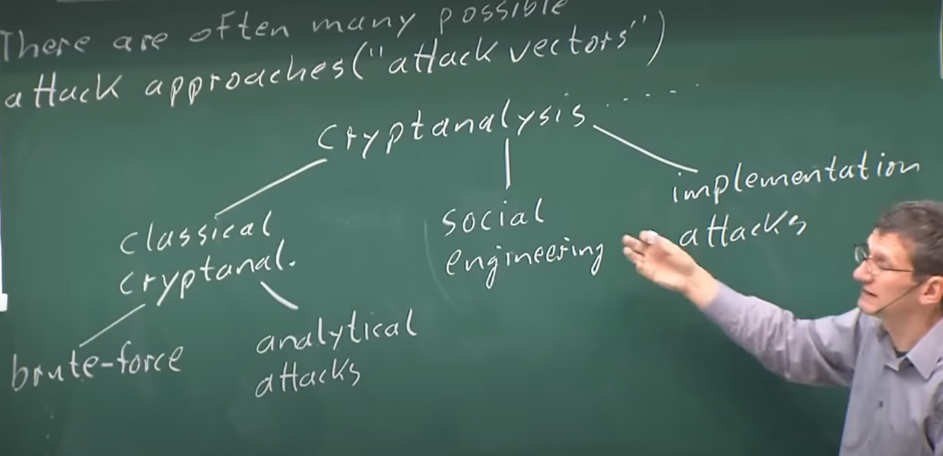 There are often many possible
attack approaches("attack vectors")
cryptanalysis ......
classical
cryptanal.
social
engineering
implementation
attacks
brute-force
analytical
attacks